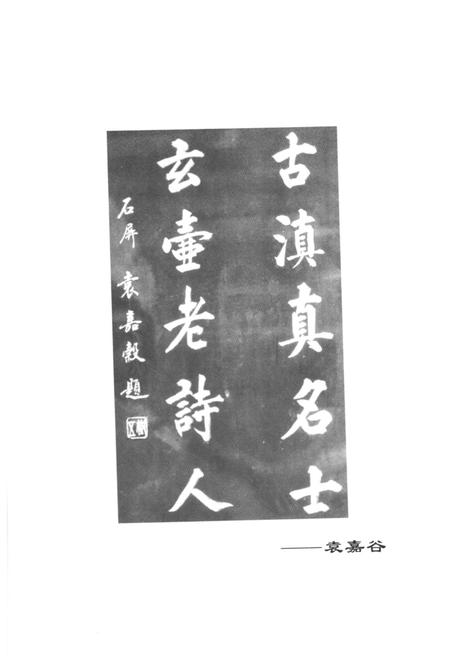 古滇真名士
玄壺老詩人
石屏 袁嘉穀題
——袁嘉谷